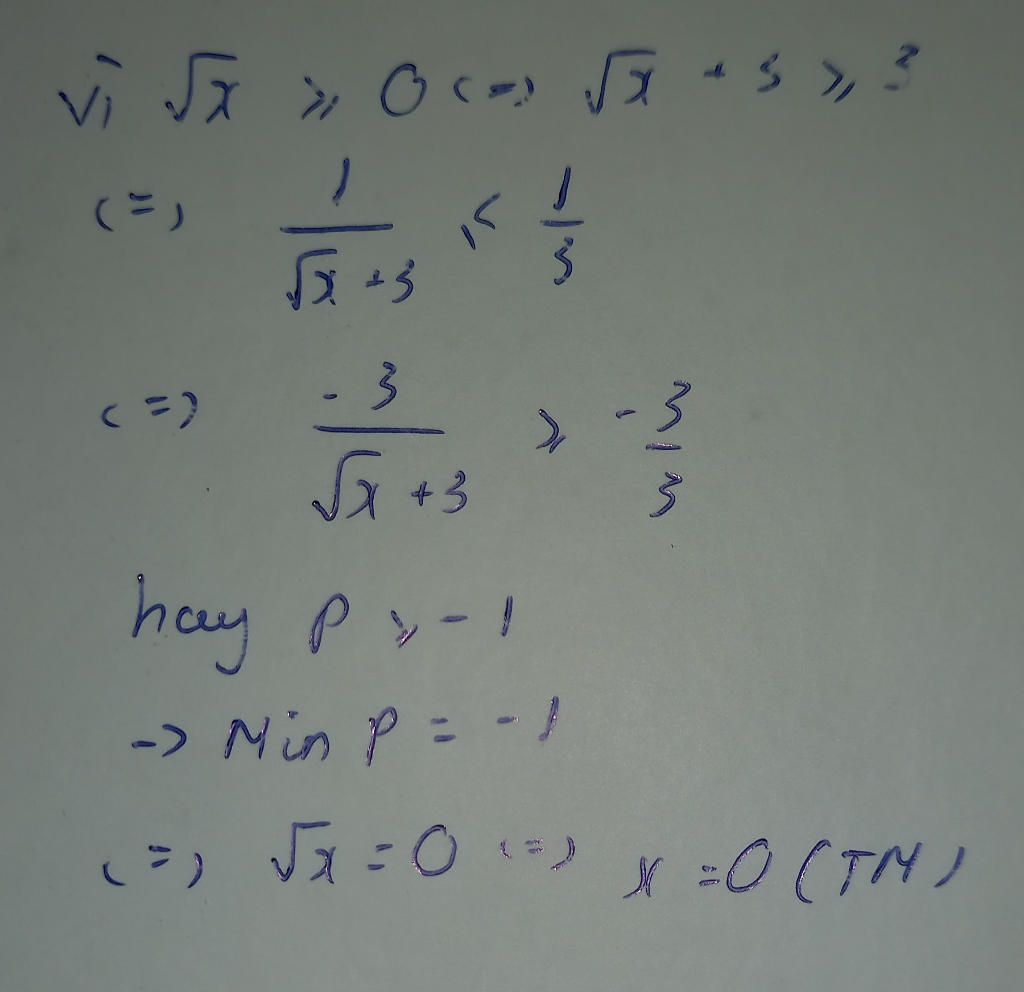 vì √x ≥ 0 (=) √x + 3 ≥ 3
(=) 1/(√x + 3) ≤ 1/3
(=) -3/(√x + 3) ≥ -3/3
hay P ≥ -1
-> Min P = -1
(=) √x = 0 (=) x = 0 (TM)